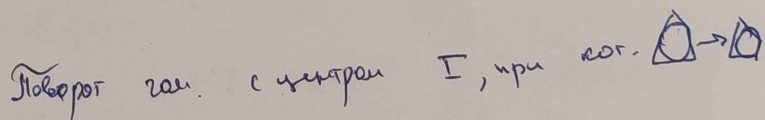 Поворот гом. с центром I, при кот. △→△